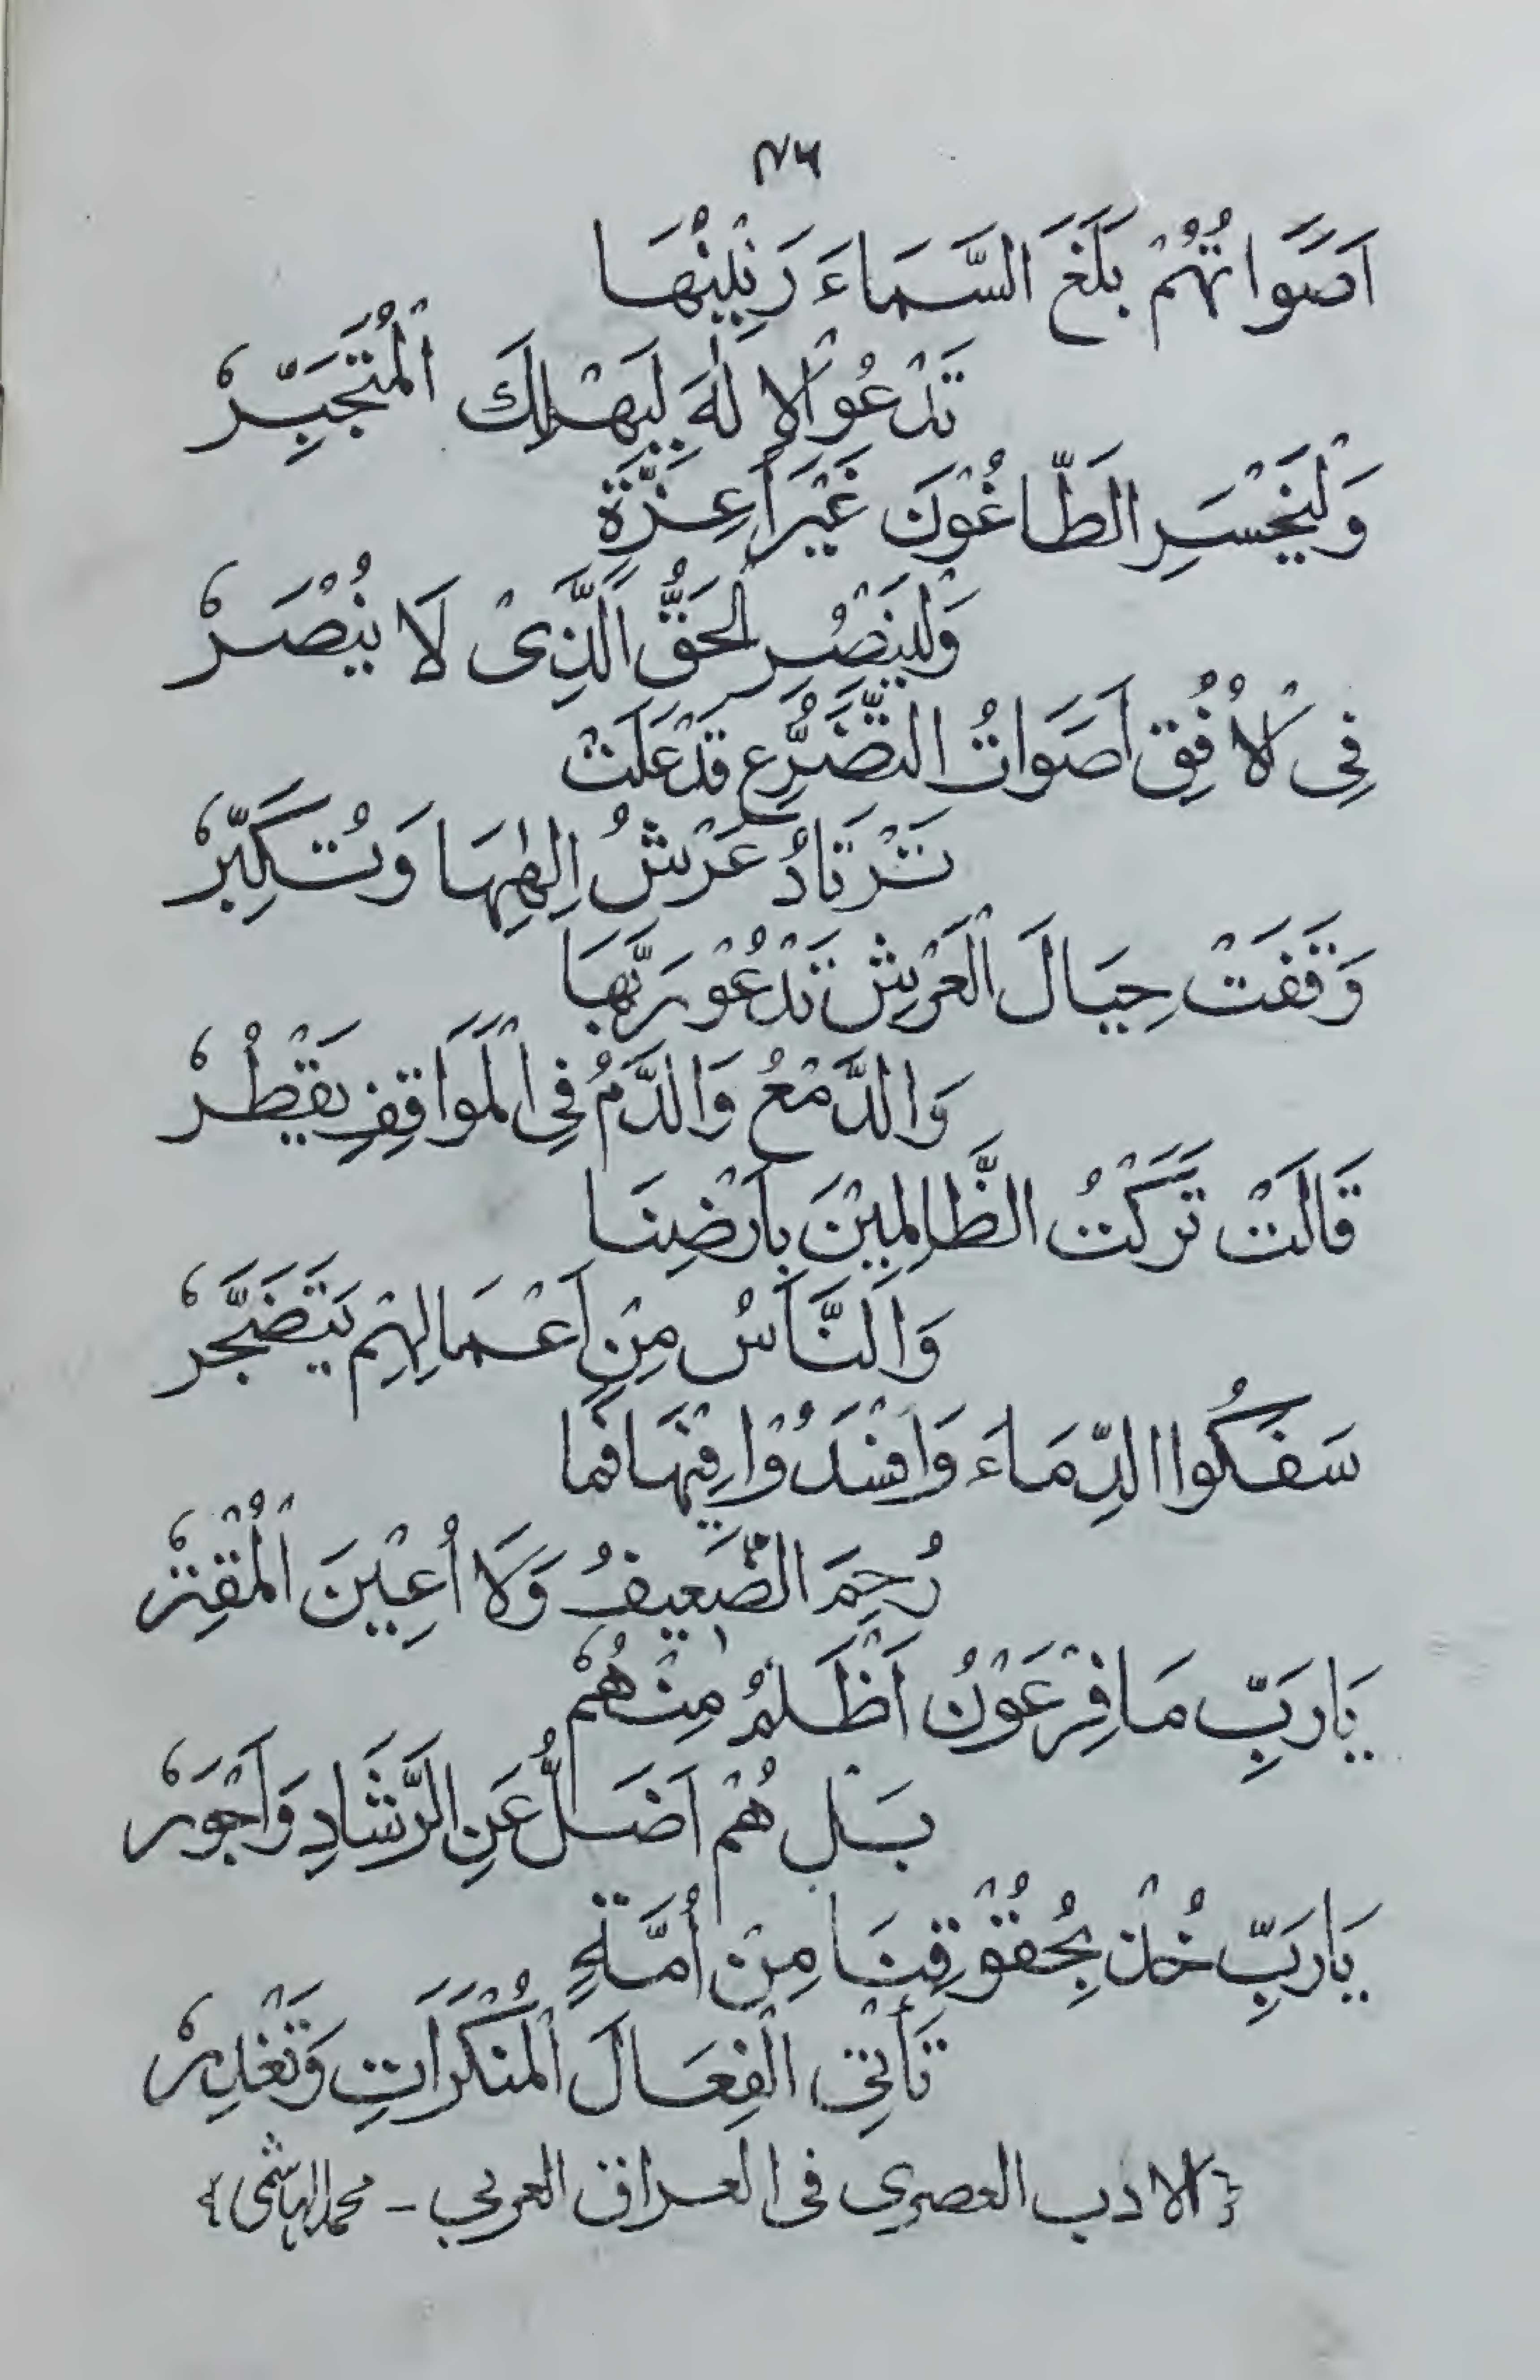 ٧٦
اَصَوَاتُهُمْ بَلَغَ السَّمَاءَ رَنِيْنُهَا
تَدْعُوْالاِلٰهَ لِيَهْلِكَ الْمُتَجَبِّرْ
وَلْيَخْسَرِ الطَّاغُوْنَ غَيْرَ اَعِزَّةٍ
وَلْيَنْصُرِ الْحَقُّ الَّذِىْ لَا يُنْصَرْ
فِى الْاُفُقِ اَصَوَاتُ التَّضَرُّعِ قَدْعَلَتْ
تَرْتَادُ عَرْشُ اِلٰهِهَا وَتُكَبِّرْ
وَقَفَتْ حِيَالَ الْعَرْشِ تَدْعُوْرَبَّهَا
وَالدَّمْعُ وَالدَّمُ فِى الْمَوَاقِفِ يَقْطُرْ
قَالَتْ تَرَكْتُ الظَّالِمِيْنَ بِاَرْضِنَا
وَالنَّاسُ مِنْ اَعْمَالِهِمْ يَتَضَجَّرْ
سَفَكُوا الدِّمَاءَ وَاَفْسَدُوْا فِيْهَا فَمَا
رُحِمَ الضَّعِيفُ وَلَا اُعِيْنَ الْمُقْتِرْ
يَارَبِّ مَا فِرْعَوْنُ اَظْلَمُ مِنْهُمْ
بَلْ هُمْ اَضَلُّ عَنِ الرَّشَادِ وَاَجْوَرْ
يَارَبِّ خُذْ بِحُقُوْقِنَا مِنْ اُمَّةٍ
تَأْتِى الْفِعَالَ الْمُنْكَرَاتِ وَتَغْدِرْ
{الادب العصري فى العراق العربي - محمد الهاشمى}